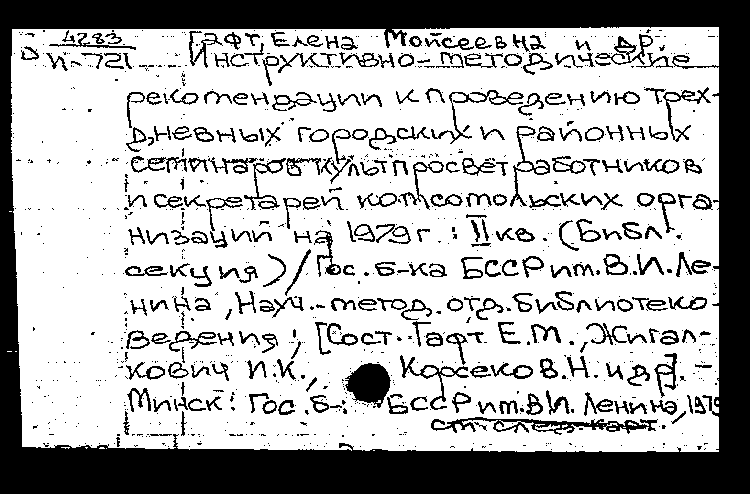 4283 Гафт, Елена Мойсеевна и др.
D и-721 Инструктивно-методические
рекомендации к проведению трех-
дневных городских и районных
семинаров культпросветработников
и секретарей комсомольских орга-
низаций на 1979 г. : II кв. (Библ.
секция) / Гос. б-ка БССР им. В.И. Ле-
нина, Науч.-метод. отд. библиотеко-
ведения ; [Сост. Гафт Е.М., Жигал-
кович И.К., Корсеко В.Н. и др]. –
Минск : Гос. б- БССР им. В.И. Ленина, 1979
см. след. карт.